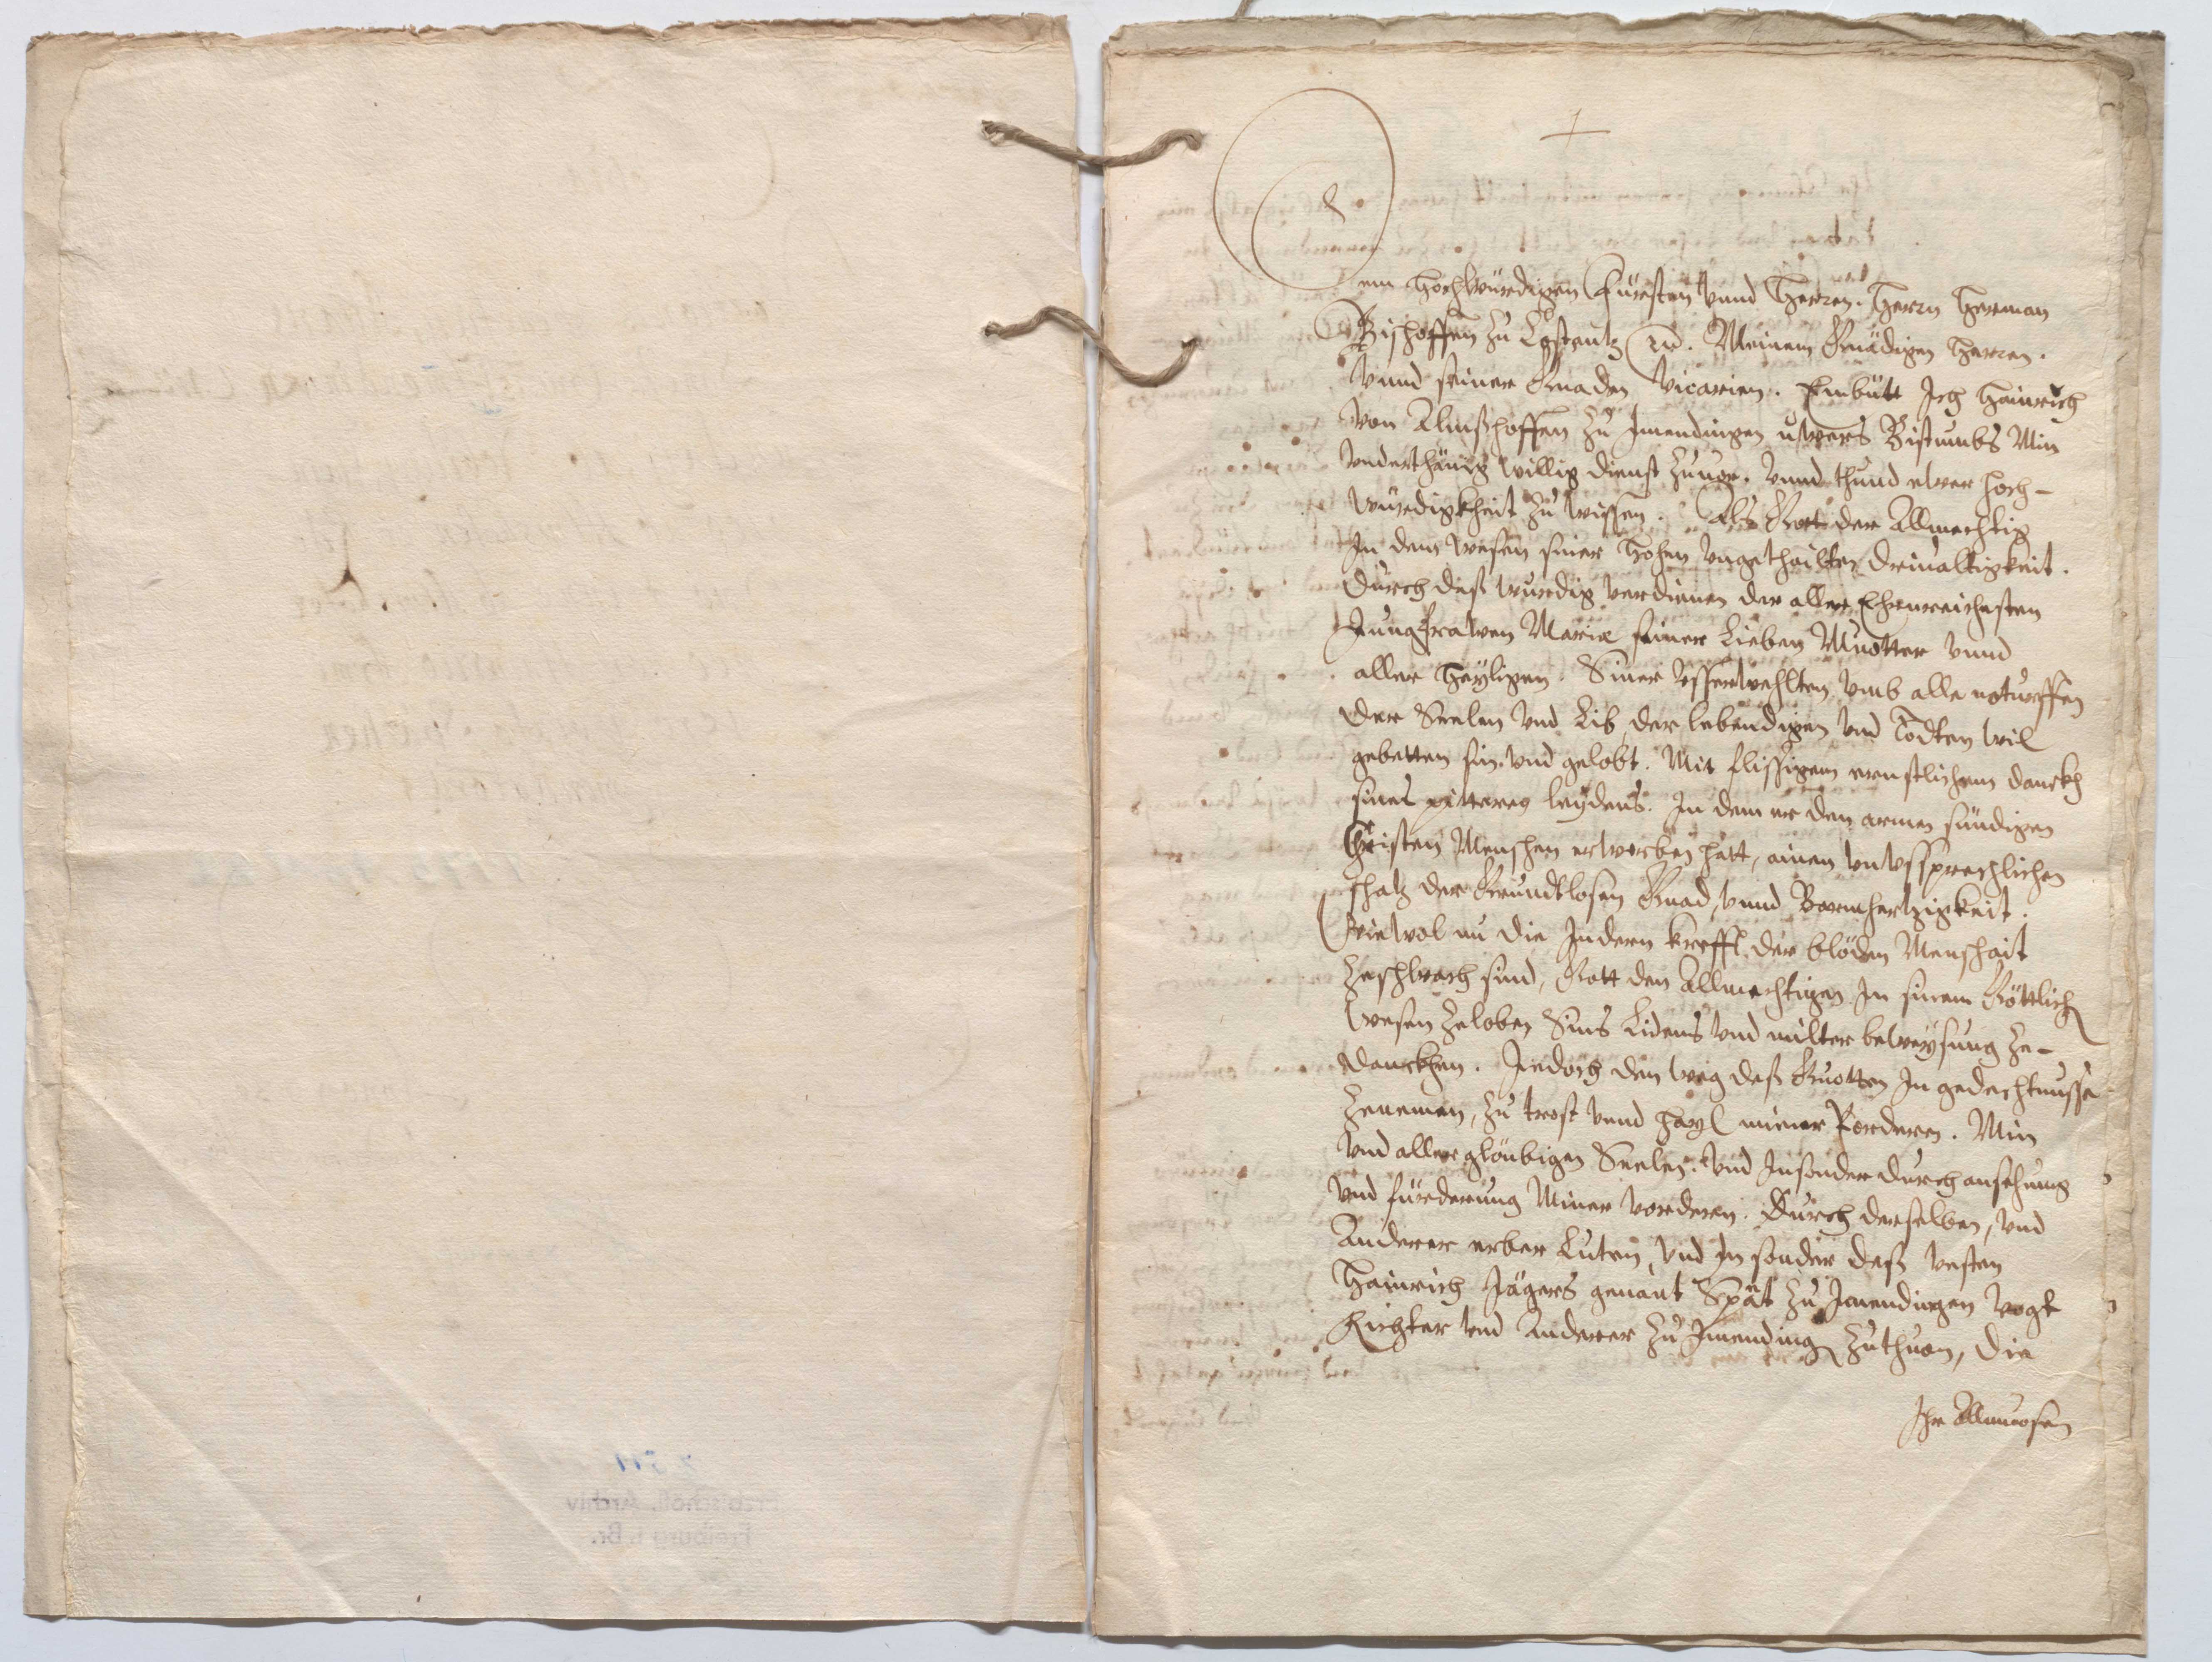 Dem Hochwürdigen Fürsten vnnd Herren. Herrn Herman
Bischoffen zů Costentz etc. Meinem Gnädigen Herren.
vnnd seiner Gnaden Vicarien. Embütt Ich Hainrich
von Almßhoffen zů Imendingen uwers Bistumbs Min
vnderthänig willig dienst zuuor. vnnd thund ewer hoch-
würdigkheit zů wissen. Als Gott der Allmechtig
In dem wesen siner hohen vngethailten dreiualtigkeit.
durch daß würdig verdienen der aller Ehrenreichesten
Jungfrawen Mariæ seiner Lieben Muotter vnnd
aller Heyligen. Siner vsserwehlten, vmb alle noturfften
der Seelen vnd Lib, der lebendigen vnd Todten wil
gebetten sin. vnd gelobt. Mit flissigem ernstlichem danckh
sines pitteren leydens. In dem er den armen sündigen
Christen Menschen erworben hatt, ainen vnvssprechlichen
schatz der Grundtlosen Gnad, vnnd Barmhertzigkeit.
Wiewol nu die Indern krefft der blöden Menschait
zeschwach sind, Gott den Allmechtigen In sinem Göttlich
wesen zeloben, Sins Lidens vnd milter beweysung ze-
danckhen. Jedoch den weg deß Guotten In gedechtnusse
zenemen, zů trost vnnd hayl miner Forderen. Min
vnd aller gloubigen Seelen. vnd Insonder durch ansehung
vnd fürderung Miner vorderen. Durch derselben, vnd
Anderer erber Luten, vnd In sonder deß vesten
Hainrich Jägers genant Spät zů Imendingen Vogt
Richter vnd Anderer zů Imending zuthuon, die
Ihr Allmuosen
Erzbischöfl. Archiv
Freiburg i. Br.